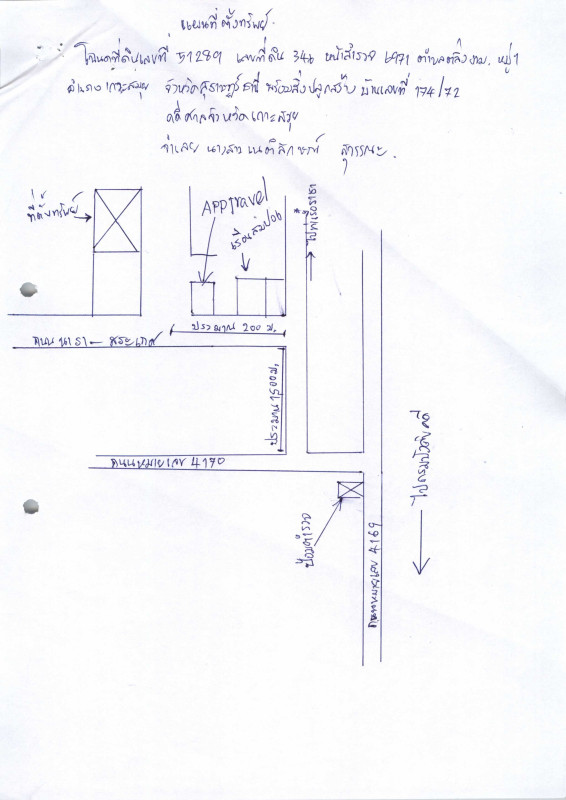 แผนที่ตั้งทรัพย์
โฉนดที่ดินเลขที่ 51289 เลขที่ดิน 346 หน้าสำรวจ 6971 ตำบลตลิ่งงาม หมู่ 1
อำเภอเกาะสมุย จังหวัดสุราษฎร์ธานี พร้อมสิ่งปลูกสร้าง บ้านเลขที่ 174/72
คดีศาลจังหวัดเกาะสมุย
จำเลย นางสาวเนตลักษณ์ สุวรรณะ.
ที่ตั้งทรัพย์
APP travel
ไปท่าเรือราชา
ประมาณ 200 ม.
ถนน นารา - สระเกศ
ประมาณ 1500 ม.
ถนนหมายเลข 4170
ป้อมตำรวจ
ถนนหมายเลข 4169